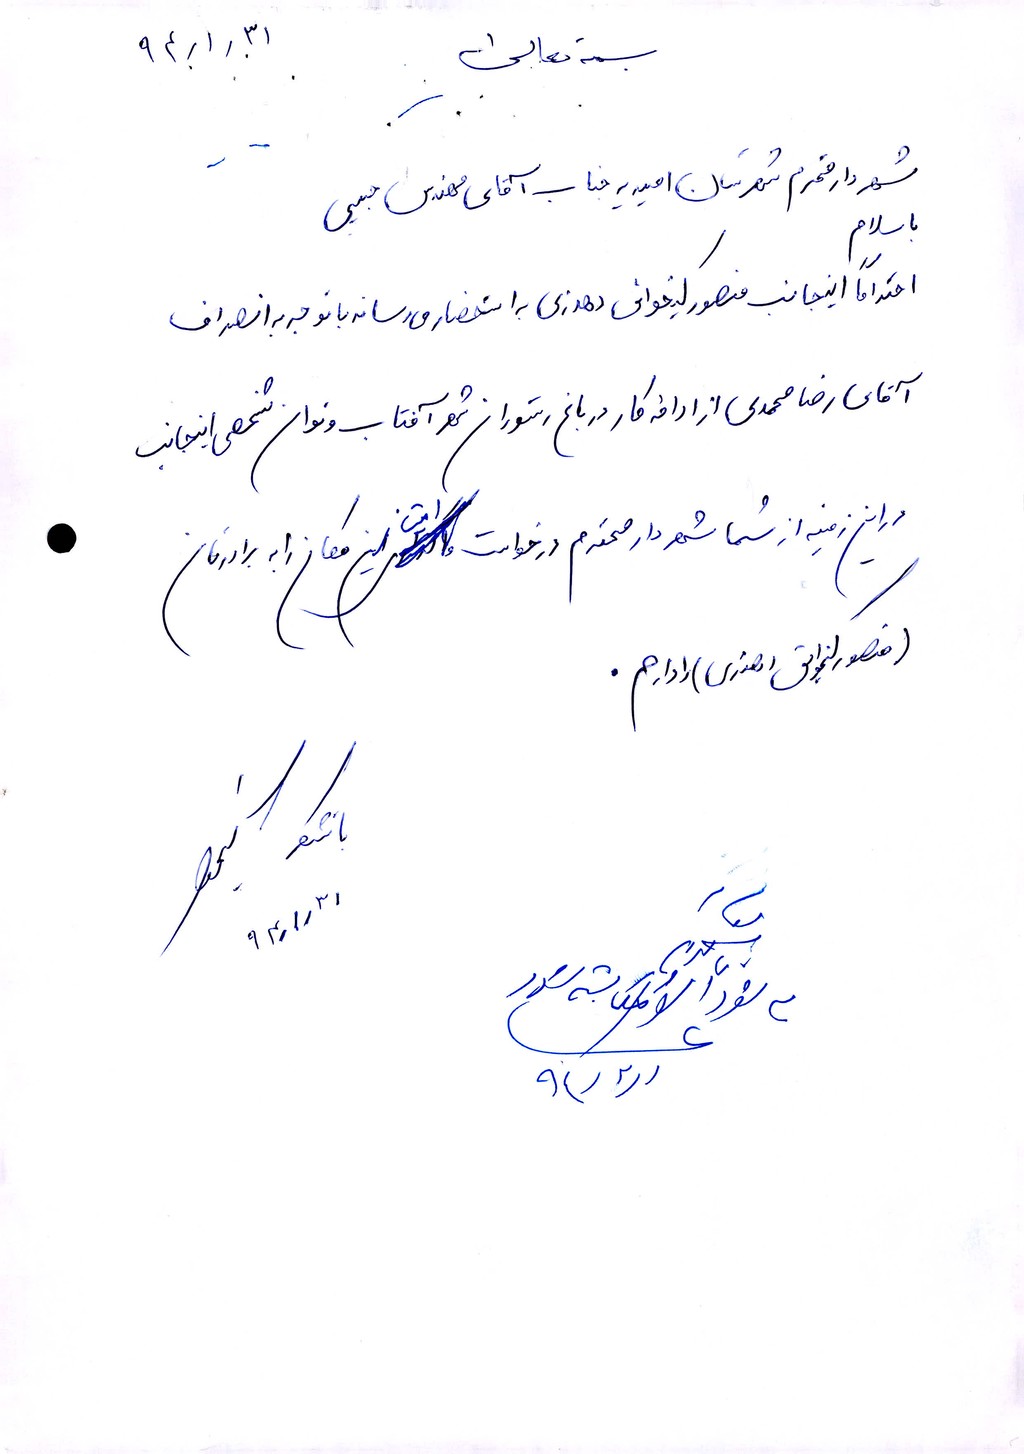 ۹۴/۱/۳۱
بسمه تعالی
شهردار محترم شهرستان امیدیه جناب آقای مهندس حبیبی
با سلام
احتراماً اینجانب منصور کیخوائی دهدزی به استحضار می رساند با توجه به انصراف
آقای رضا محمدی از ادامه کار در باغ رستوران شهر آفتاب و توان شخصی اینجانب
در این زمینه از شما شهردار محترم درخواست امتیاز این مکان را به برادرتان
(منصور کیخوائی دهدزی) را دارم.
با تشکر
۹۴/۱/۳۱